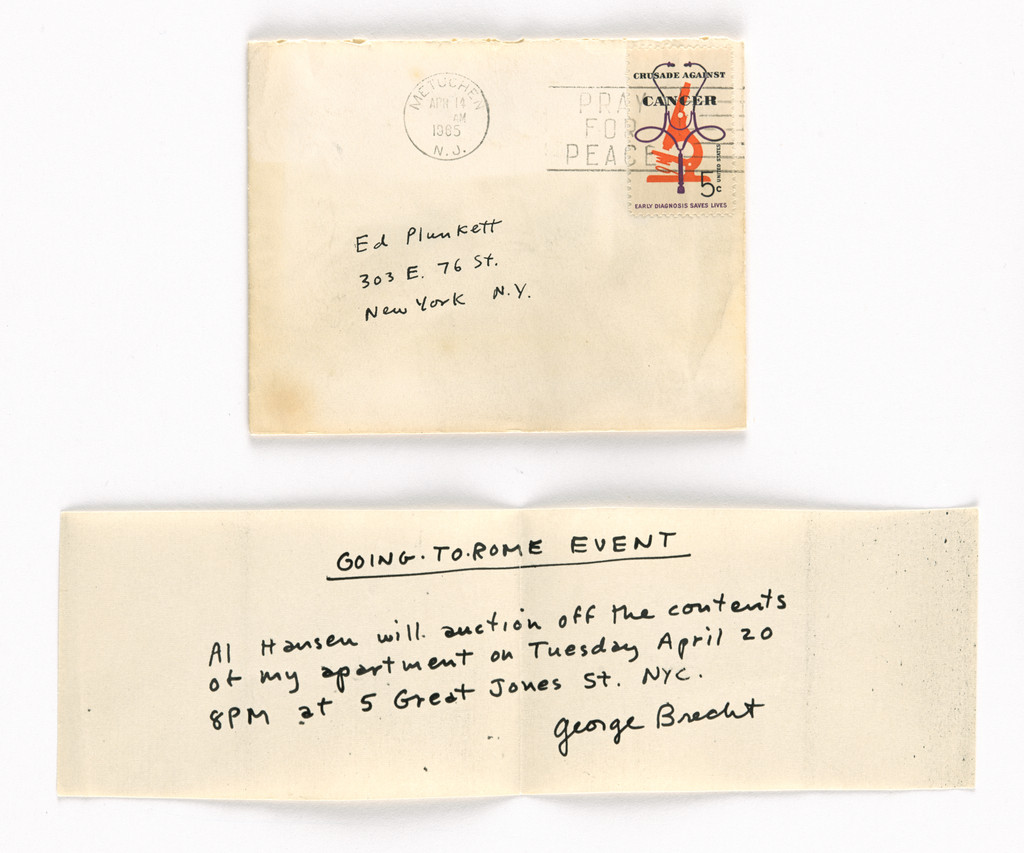 METUCHEN
APR 14
AM
1965
N. J.
PRAY
FOR
PEACE
CRUSADE AGAINST
CANCER
5c
UNITED STATES
EARLY DIAGNOSIS SAVES LIVES
Ed Plunkett
303 E. 76 St.
New York N.Y.
GOING·TO·ROME EVENT
Al Hansen will auction off the contents
of my apartment on Tuesday April 20
8PM at 5 Great Jones St. NYC.
George Brecht